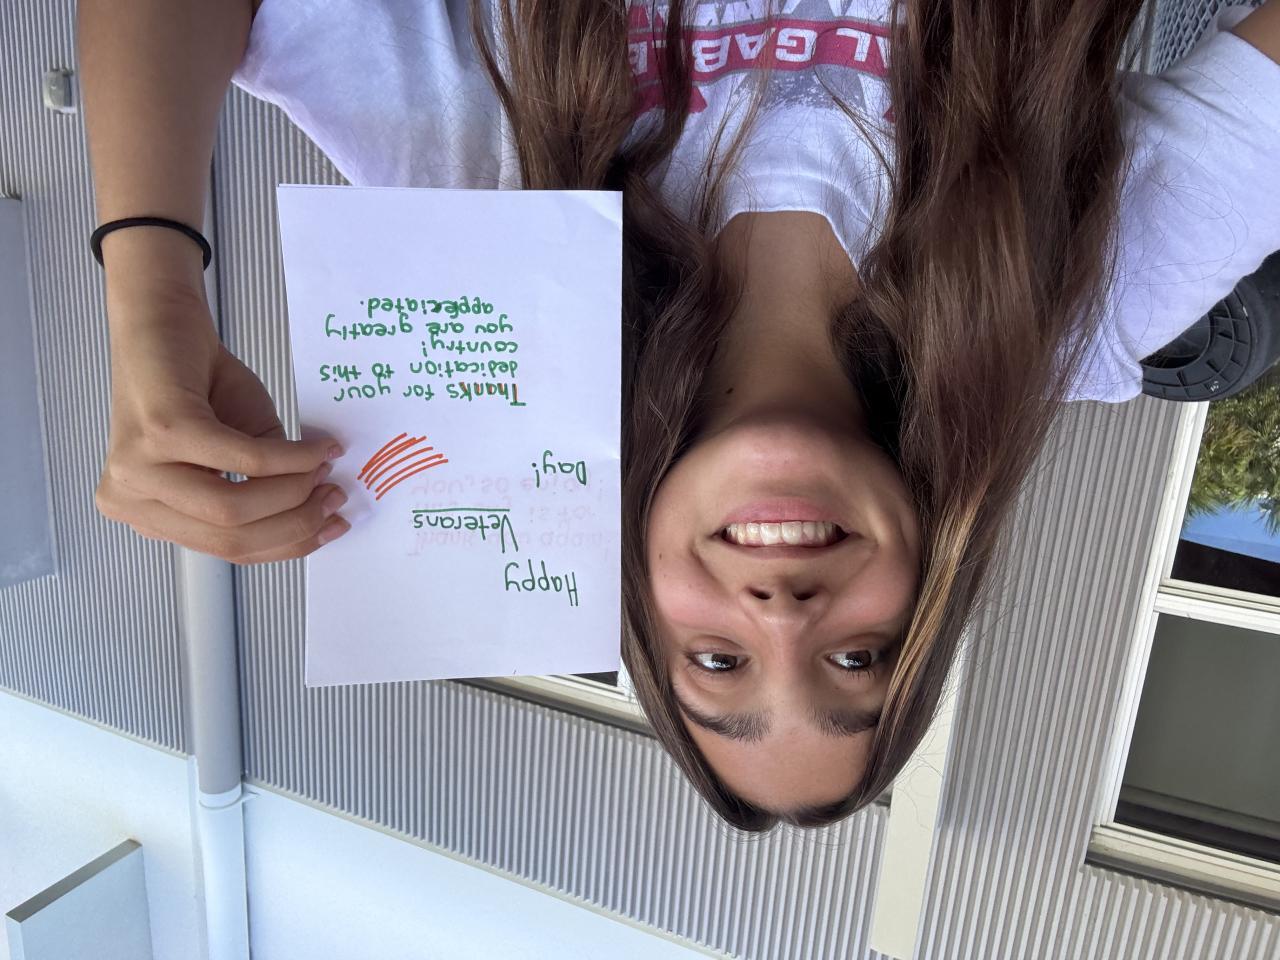 AL GABLE
Happy
Veterans
Day!
Thanks for your
dedication to this
country!
you are greatly
appreciated.